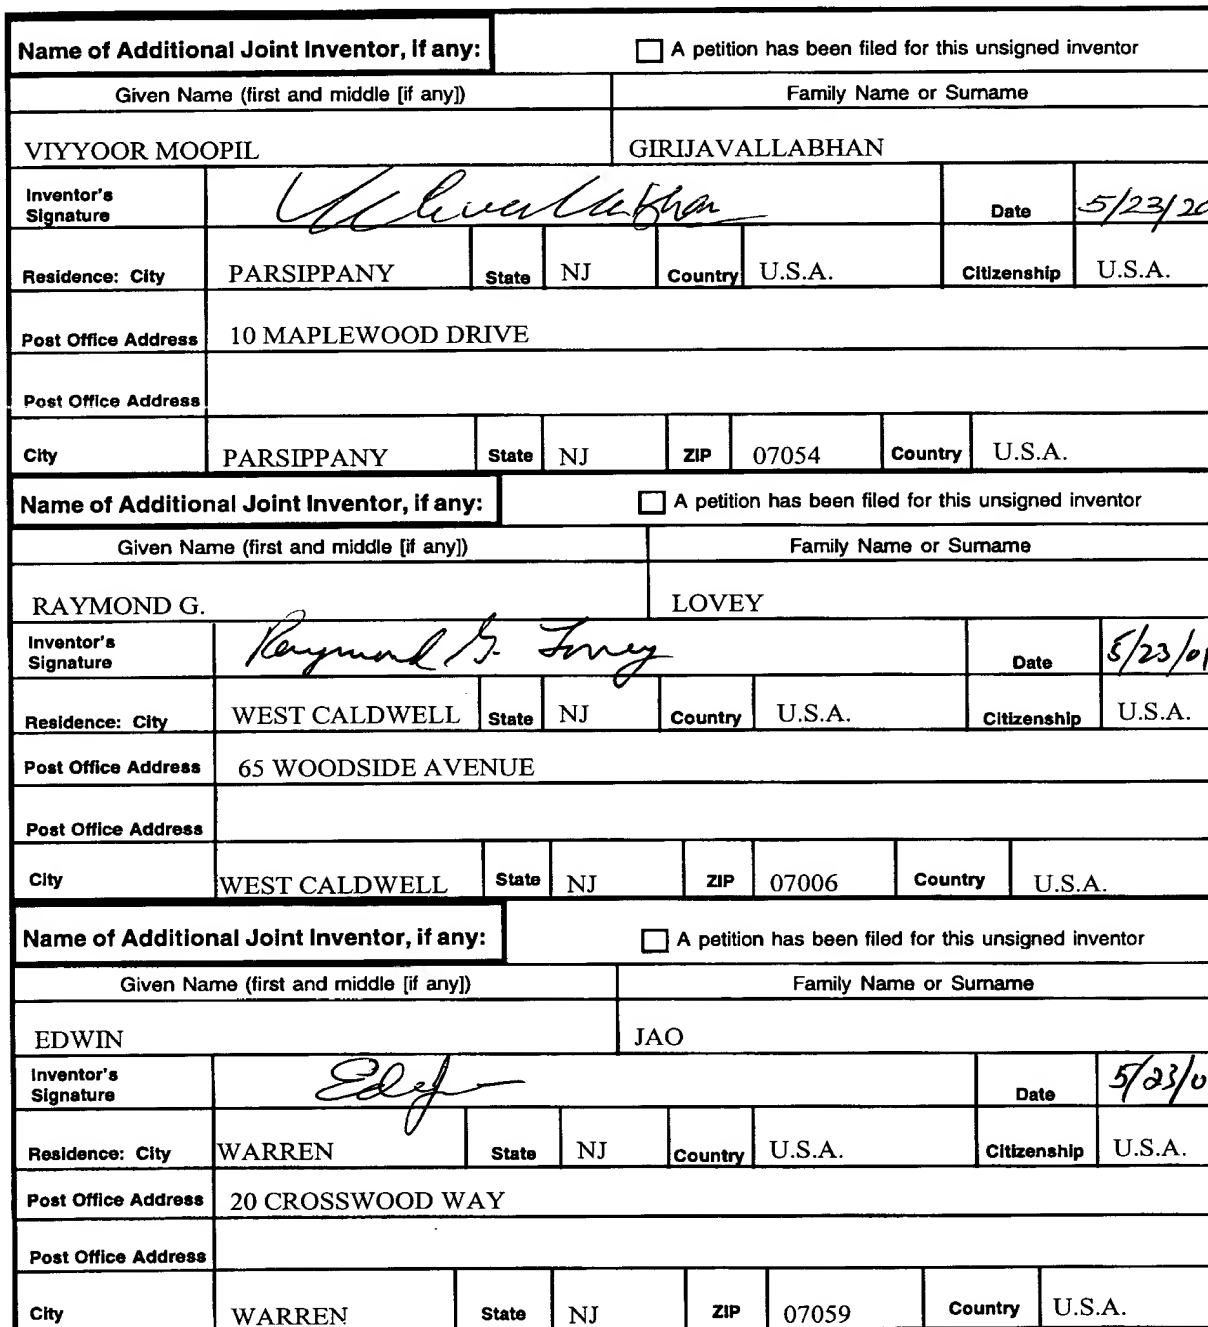 Name of Additional Joint Inventor, if any: A petition has been filed for this unsigned inventor
Given Name (first and middle [if any]) Family Name or Surname
VIYYOOR MOOPIL GIRIJAVALLABHAN
Inventor's Signature Date 5/23/20
Residence: City PARSIPPANY State NJ Country U.S.A. Citizenship U.S.A.
Post Office Address 10 MAPLEWOOD DRIVE
Post Office Address
City PARSIPPANY State NJ ZIP 07054 Country U.S.A.
Name of Additional Joint Inventor, if any: A petition has been filed for this unsigned inventor
Given Name (first and middle [if any]) Family Name or Surname
RAYMOND G. LOVEY
Inventor's Signature Raymond G. Lovey Date 5/23/01
Residence: City WEST CALDWELL State NJ Country U.S.A. Citizenship U.S.A.
Post Office Address 65 WOODSIDE AVENUE
Post Office Address
City WEST CALDWELL State NJ ZIP 07006 Country U.S.A.
Name of Additional Joint Inventor, if any: A petition has been filed for this unsigned inventor
Given Name (first and middle [if any]) Family Name or Surname
EDWIN JAO
Inventor's Signature Date 5/23/0
Residence: City WARREN State NJ Country U.S.A. Citizenship U.S.A.
Post Office Address 20 CROSSWOOD WAY
Post Office Address
City WARREN State NJ ZIP 07059 Country U.S.A.